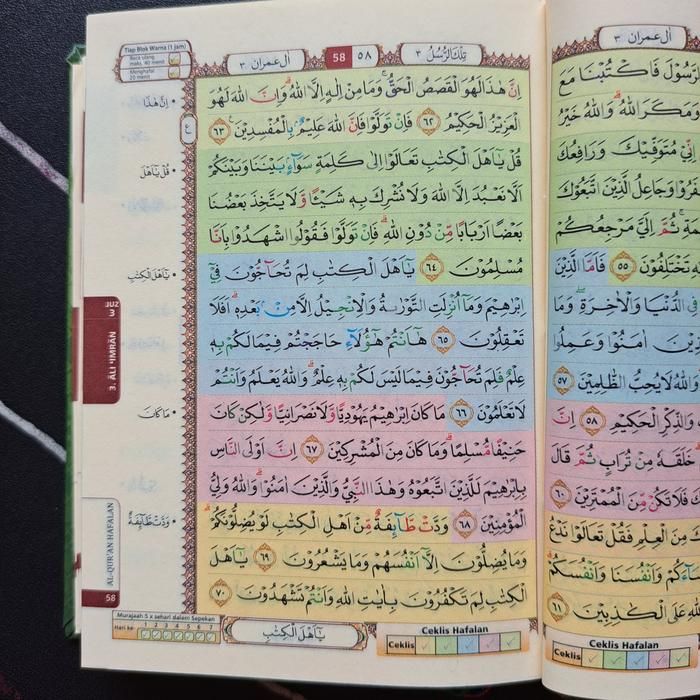 Tiap Blok Warna (1 Jam)
Baca ulang
maks. 40 menit
Menghafal
20 menit
اٰل عمران ٣
58 ٥٨
تِلْكَ الرُّسُلُ ٣
اِنَّ هٰذَا لَهُوَ الْقَصَصُ الْحَقُّ ۚ وَمَا مِنْ اِلٰهٍ اِلَّا اللّٰهُ ۗوَاِنَّ اللّٰهَ لَهُوَ
الْعَزِيْزُ الْحَكِيْمُ ٦٢ فَاِنْ تَوَلَّوْا فَاِنَّ اللّٰهَ عَلِيْمٌ ۢبِالْمُفْسِدِيْنَ ٦٣
قُلْ يٰٓاَهْلَ الْكِتٰبِ تَعَالَوْا اِلٰى كَلِمَةٍ سَوَاۤءٍۢ بَيْنَنَا وَبَيْنَكُمْ
اَلَّا نَعْبُدَ اِلَّا اللّٰهَ وَلَا نُشْرِكَ بِهٖ شَيْـًٔا وَّلَا يَتَّخِذَ بَعْضُنَا
بَعْضًا اَرْبَابًا مِّنْ دُوْنِ اللّٰهِ ۗفَاِنْ تَوَلَّوْا فَقُوْلُوا اشْهَدُوْا بِاَنَّا
مُسْلِمُوْنَ ٦٤ يٰٓاَهْلَ الْكِتٰبِ لِمَ تُحَاۤجُّوْنَ فِيْٓ
اِبْرٰهِيْمَ وَمَآ اُنْزِلَتِ التَّوْرٰىةُ وَالْاِنْجِيْلُ اِلَّا مِنْۢ بَعْدِهٖۗ اَفَلَا
تَعْقِلُوْنَ ٦٥ هٰٓاَنْتُمْ هٰٓؤُلَاۤءِ حَاجَجْتُمْ فِيْمَا لَكُمْ بِهٖ
عِلْمٌ فَلِمَ تُحَاۤجُّوْنَ فِيْمَا لَيْسَ لَكُمْ بِهٖ عِلْمٌ ۗوَاللّٰهُ يَعْلَمُ وَاَنْتُمْ
لَا تَعْلَمُوْنَ ٦٦ مَاكَانَ اِبْرٰهِيْمُ يَهُوْدِيًّا وَّلَا نَصْرَانِيًّا وَّلٰكِنْ كَانَ
حَنِيْفًا مُّسْلِمًاۗ وَمَا كَانَ مِنَ الْمُشْرِكِيْنَ ٦٧ اِنَّ اَوْلَى النَّاسِ
بِاِبْرٰهِيْمَ لَلَّذِيْنَ اتَّبَعُوْهُ وَهٰذَا النَّبِيُّ وَالَّذِيْنَ اٰمَنُوْا ۗ وَاللّٰهُ وَلِيُّ
الْمُؤْمِنِيْنَ ٦٨ وَدَّتْ طَّاۤىِٕفَةٌ مِّنْ اَهْلِ الْكِتٰبِ لَوْ يُضِلُّوْنَكُمْۗ
وَمَا يُضِلُّوْنَ اِلَّآ اَنْفُسَهُمْ وَمَا يَشْعُرُوْنَ ٦٩ يٰٓاَهْلَ
الْكِتٰبِ لِمَ تَكْفُرُوْنَ بِاٰيٰتِ اللّٰهِ وَاَنْتُمْ تَشْهَدُوْنَ ٧٠
يٰٓاَهْلَ الْكِتٰبِ
Ceklis Hafalan
Ceklis
ع
اِنَّ هٰذَا
قُلْ يٰٓاَهْلَ
يٰٓاَهْلَ الْكِتٰبِ
مَا كَانَ
وَدَّتْ طَّاۤىِٕفَةٌ
JUZ
3
3. ĀLI 'IMRĀN
AL-QUR'AN HAFALAN
58
Murajaah 5 x sehari dalam Sepekan
Hari ke: 1 2 3 4 5 6 7
اٰل عمران ٣
الرَّسُوْلَ فَاكْتُبْنَا مَعَ
وَمَكَرَ اللّٰهُ ۗوَاللّٰهُ خَيْرُ
اِنِّيْ مُتَوَفِّيْكَ وَرَافِعُكَ
كَفَرُوْا وَجَاعِلُ الَّذِيْنَ اتَّبَعُوْكَ
ثُمَّ اِلَيَّ مَرْجِعُكُمْ
تَخْتَلِفُوْنَ ٥٥ فَاَمَّا الَّذِيْنَ
فِى الدُّنْيَا وَالْاٰخِرَةِ ۖ وَمَا
اٰمَنُوْا وَعَمِلُوا
وَاللّٰهُ لَا يُحِبُّ الظّٰلِمِيْنَ ٥٧
وَالذِّكْرِ الْحَكِيْمِ ٥٨ اِنَّ
خَلَقَهٗ مِنْ تُرَابٍ ثُمَّ قَالَ
فَلَا تَكُنْ مِّنَ الْمُمْتَرِيْنَ ٦٠
مِنَ الْعِلْمِ فَقُلْ تَعَالَوْا نَدْعُ
وَاَنْفُسَنَا وَاَنْفُسَكُمْ
اللّٰهِ عَلَى الْكٰذِبِيْنَ ٦١
Ceklis Hafalan
Ceklis